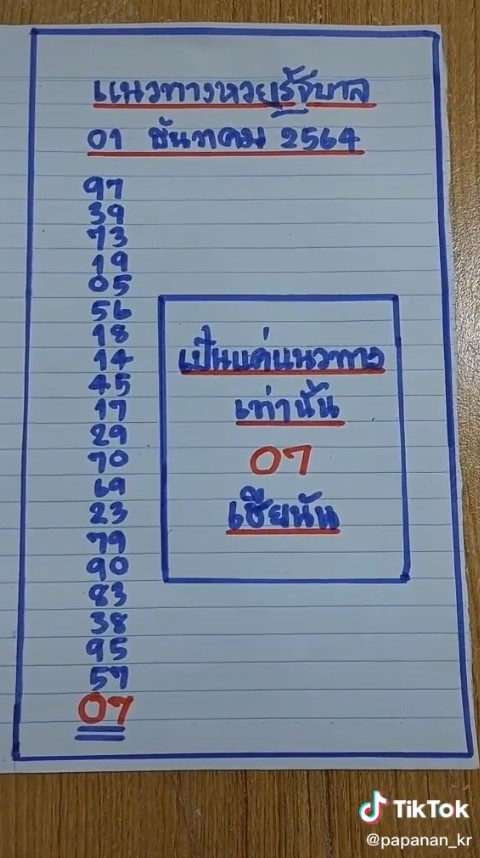 แนวทางหวยรัฐบาล
01 ธันวาคม 2564
97
39
73
19
05
56
18
14
45
17
29
70
69
23
79
90
83
38
95
57
07
เป็นแค่แนวทาง
เท่านั้น
07
เฮียนัน
TikTok
@papanan_kr